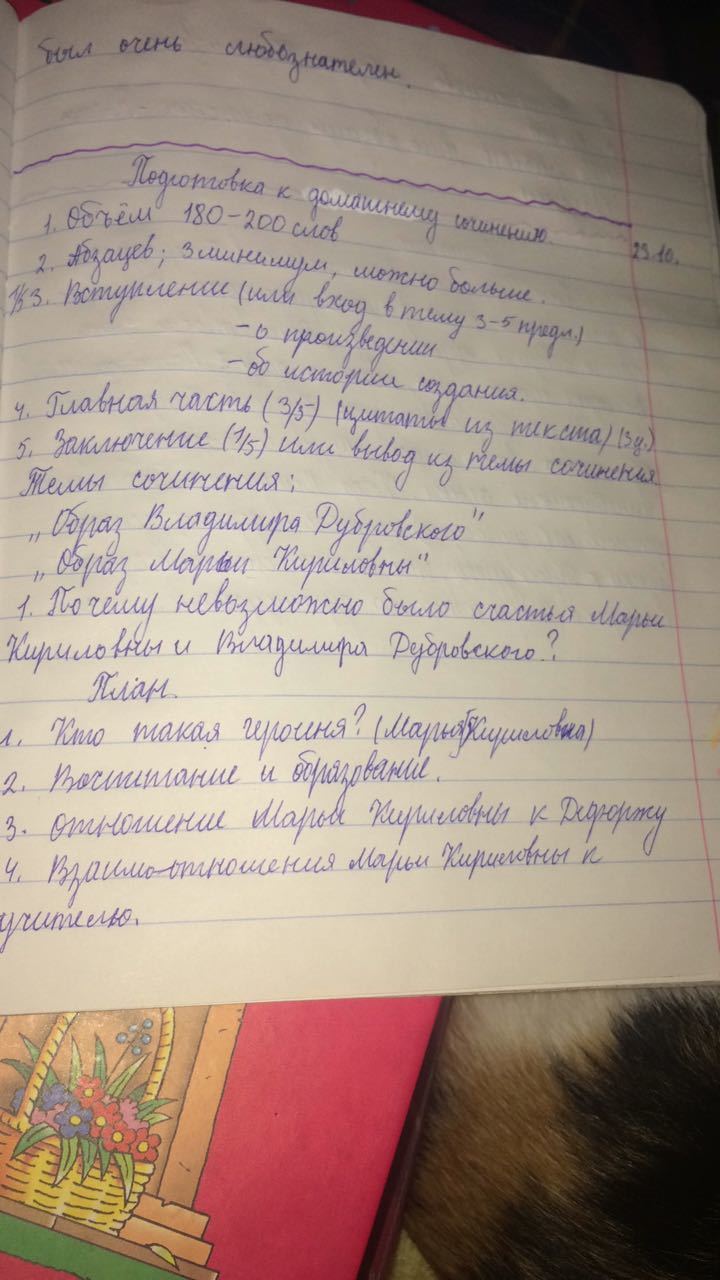 был очень слюбознателен.
Подготовка к домашнему сочинению.
23.10.
1. Объём 180-200 слов
2. Абзацев; 3 минимум, можно больше.
1/5 3. Вступление (или вход в тему 3-5 предл.)
- о произведении
- об истории создания.
4. Главная часть (3/5) (цитаты из текста) (3 ц.)
5. Заключение (1/5) или вывод из темы сочинения
Темы сочинения:
„Образ Владимира Дубровского"
„Образ Марьи Кириловны"
1. Почему невозможно было счастья Марьи
Кириловны и Владимира Дубровского?
План.
1. Кто такая героиня? (Марья Кириловна)
2. Воспитание и образование.
3. отношение Марьи Кириловны к Дефоржу
4. Взаимо-отношения Марьи Кириловны к
учителю.